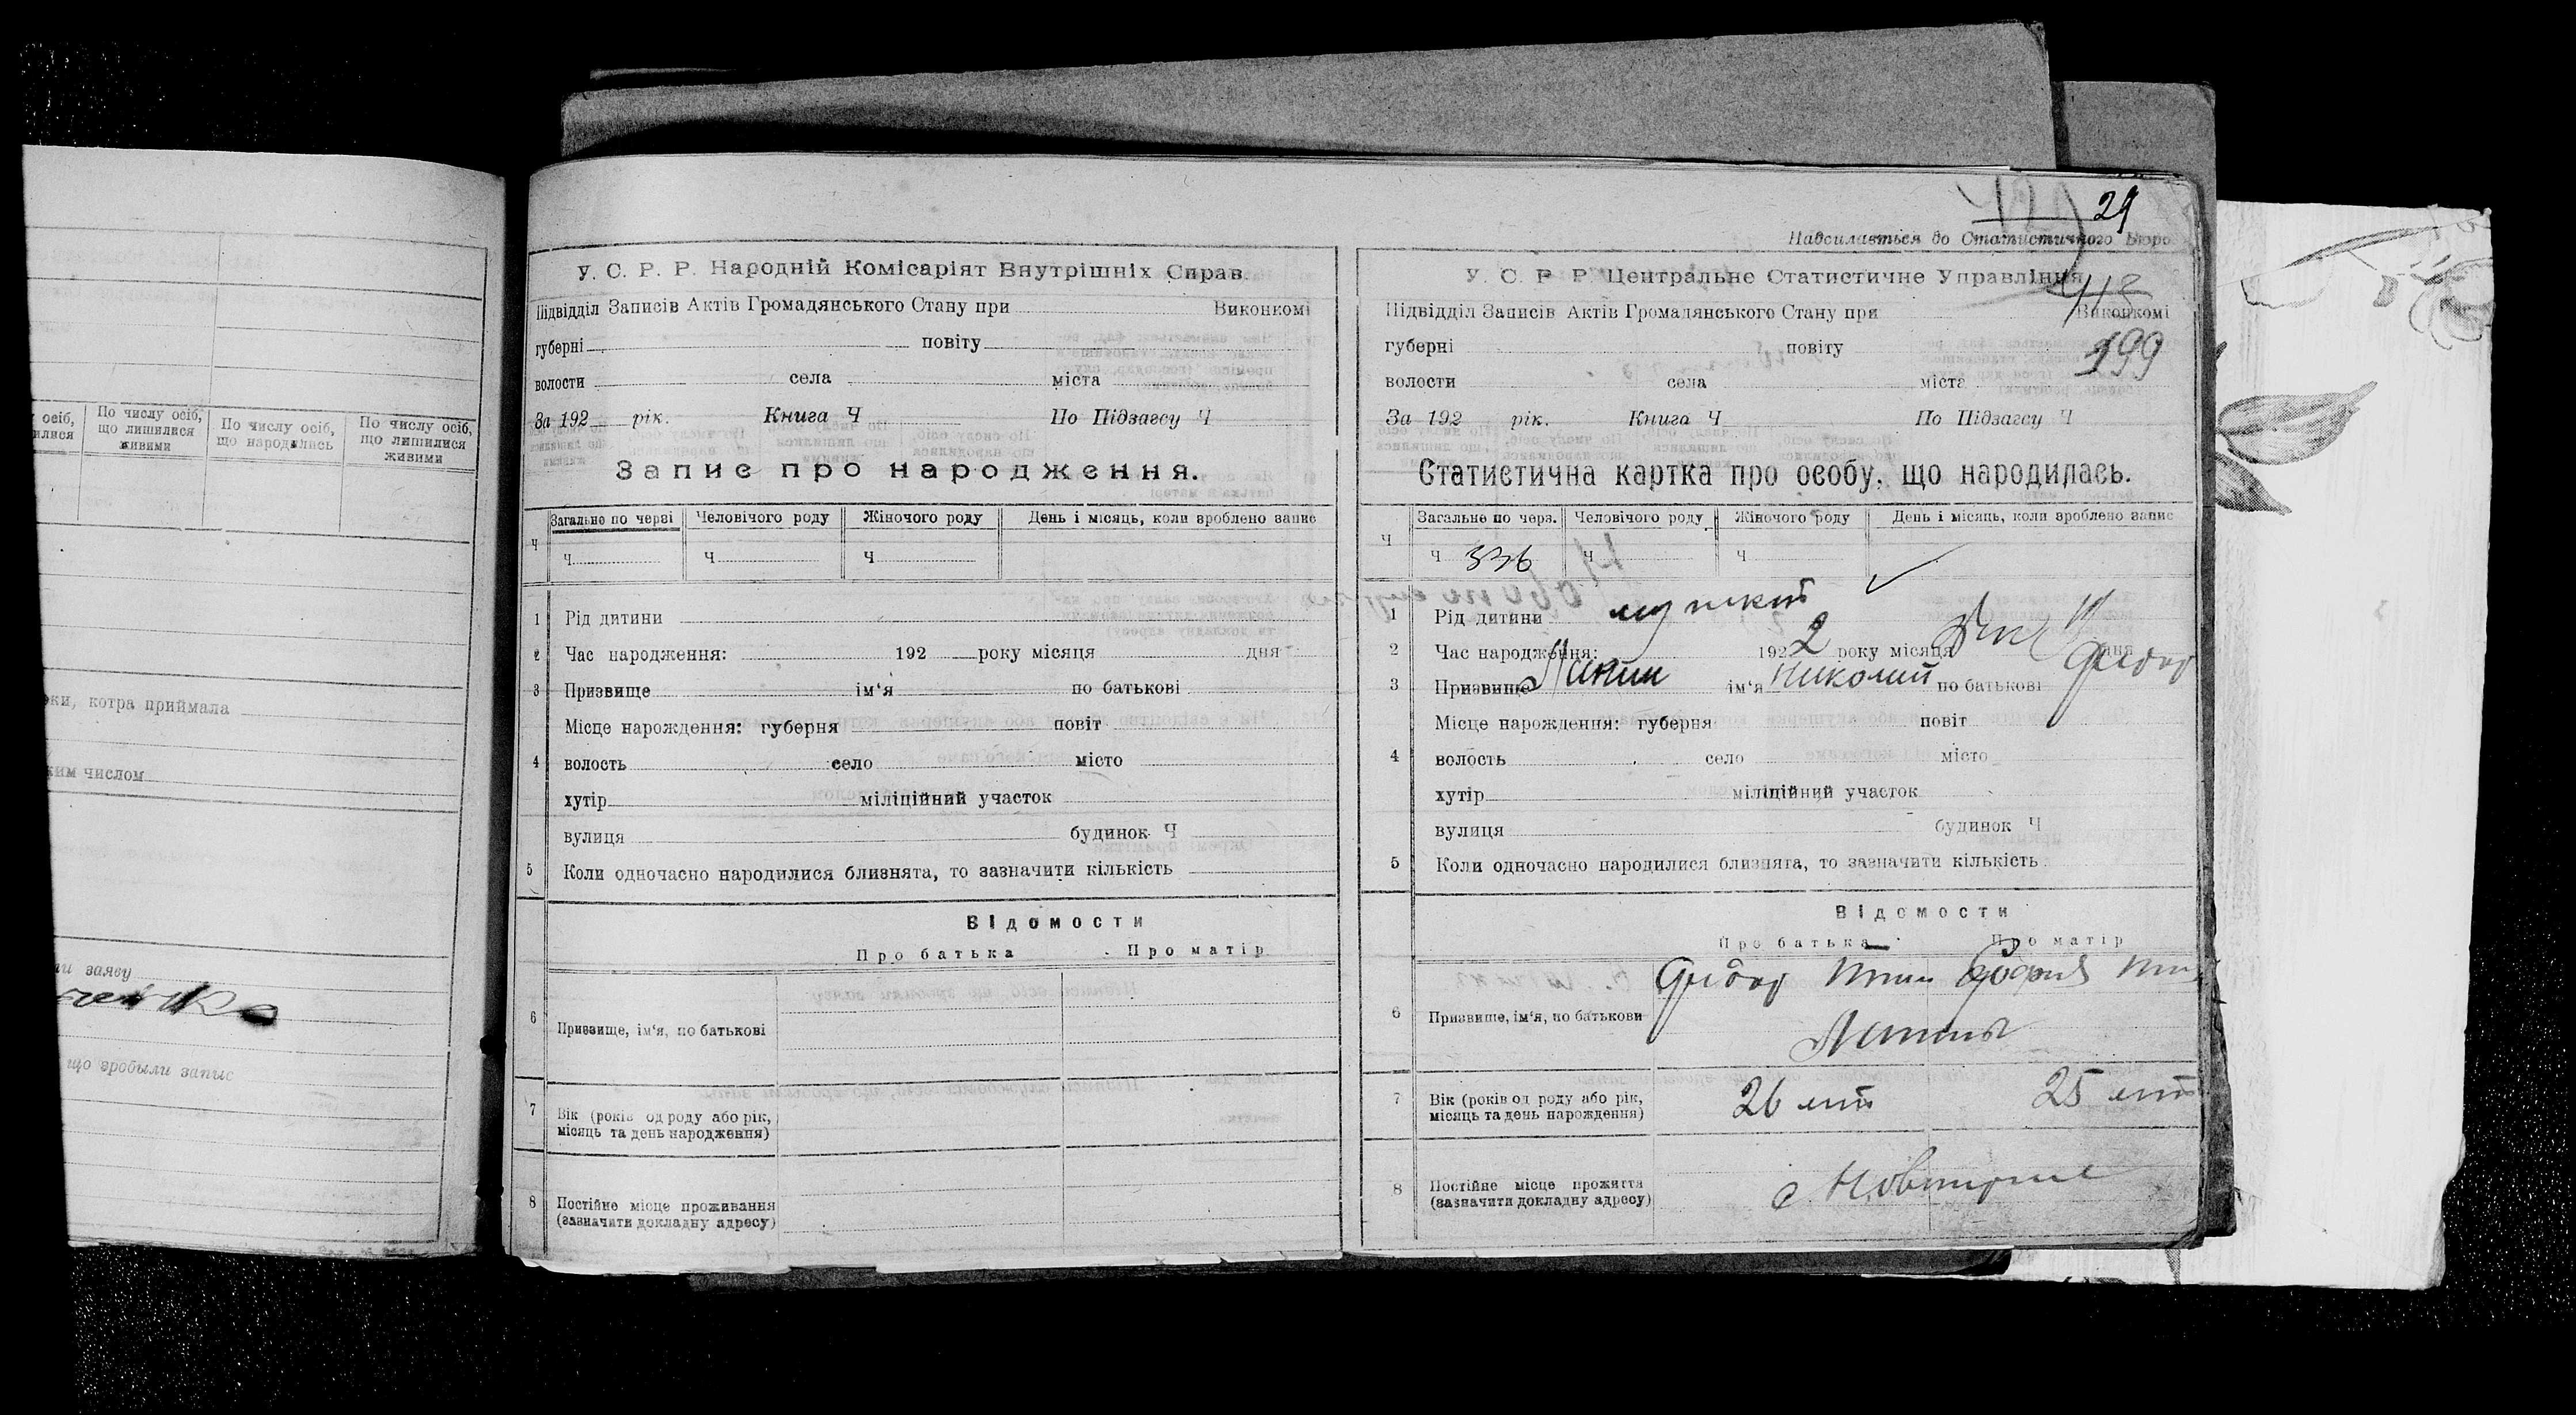 осіб,
илися
По числу осіб,
що лишилися
живими
По числу осіб,
що народились
По числу осіб,
що лишилися
живими
ки, котра приймала
ким числом
ли заяву
що зробыли запыс
У. С. Р. Р. Народній Комісаріят Внутрішніх Справ.
Підвідділ Записів Актів Громадянського Стану при Виконкомі
губерні повіту
волости села міста
За 192 рік. Книга Ч По Підзагсу Ч
Запис про народження.
Ч
Загальне по черзі Человічого роду Жіночого роду День і місяць, коли зроблено запис
Ч Ч Ч
1 Рід дитини
2 Час народження: 192 року місяця дня
3 Призвище ім‘я по батькові
Місце нарождення: губерня повіт
4 волость село місто
хутір міліційний участок
вулиця будинок Ч
5 Коли одночасно народилися близнята, то зазначити кількість
Відомости
Про батька Про матір
6 Призвище, ім‘я, по батькові
7 Вік (років од роду або рік,
місяць та день народження)
8 Постійне місце проживання
(зазначити докладну адресу)
29
Надсилається до Статистичного Бюро
У. С. Р Р. Центральне Статистичне Управління
Підвідділ Записів Актів Громадянського Стану при Виконкомі
губерні повіту 199
волости села міста
За 192 рік. Книга Ч По Підзагсу Ч
Статистична картка про особу, що народилась.
Ч
Загальне по черз. Человічого роду Жіночого роду День і місяць, коли зроблено запис
Ч 336 Ч Ч
1 Рід дитини мужской
2 Час народження: 1922 року місяця дня
3 Призвище ім‘я Николай по батькові Федор
Місце нарождення: губерня повіт
4 волость село місто
хутір міліційний участок
вулиця будинок Ч
5 Коли одночасно народилися близнята, то зазначити кількість
Відомости
Про батька Про матір
6 Призвише, ім‘я, по батькови Федор София
7 Вік (років од роду або рік,
місяць та день нарождення)
26 лет 25 лет
8 Постійне місце прожяття
(зазначити докладну адресу)
с.